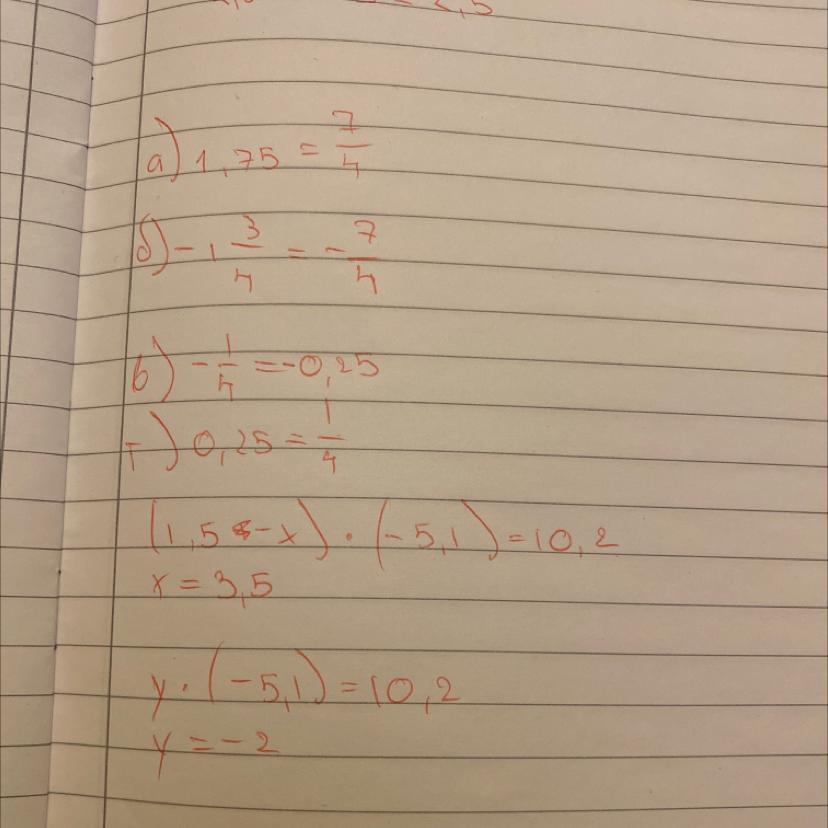 = 2,5
а) 1,75 = 7/4
б) - 1 3/4 = - 7/4
в) - 1/4 = -0,25
г) 0,25 = 1/4
(1,5 - x) · (-5,1) = 10,2
x = 3,5
y · (-5,1) = 10,2
y = -2